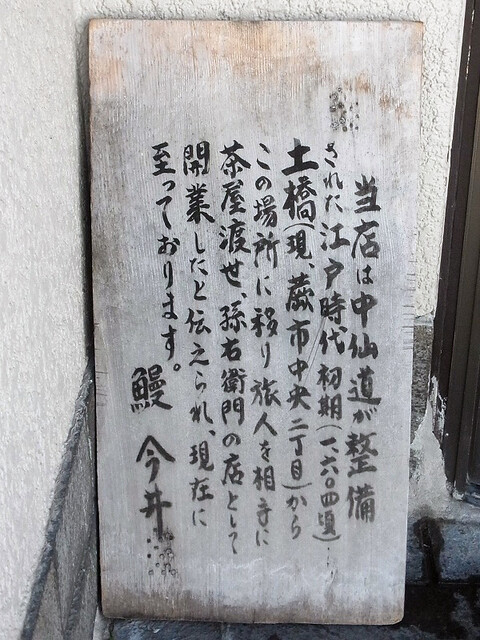 当店は中仙道が整備
された江戸時代初期(一六〇四頃)
土橋(現、蕨市中央二丁目)から
この場所に移り旅人を相手に
茶屋渡世、孫右衛門の店として
開業したと伝えられ、現在に
至っております。
鰻 今井